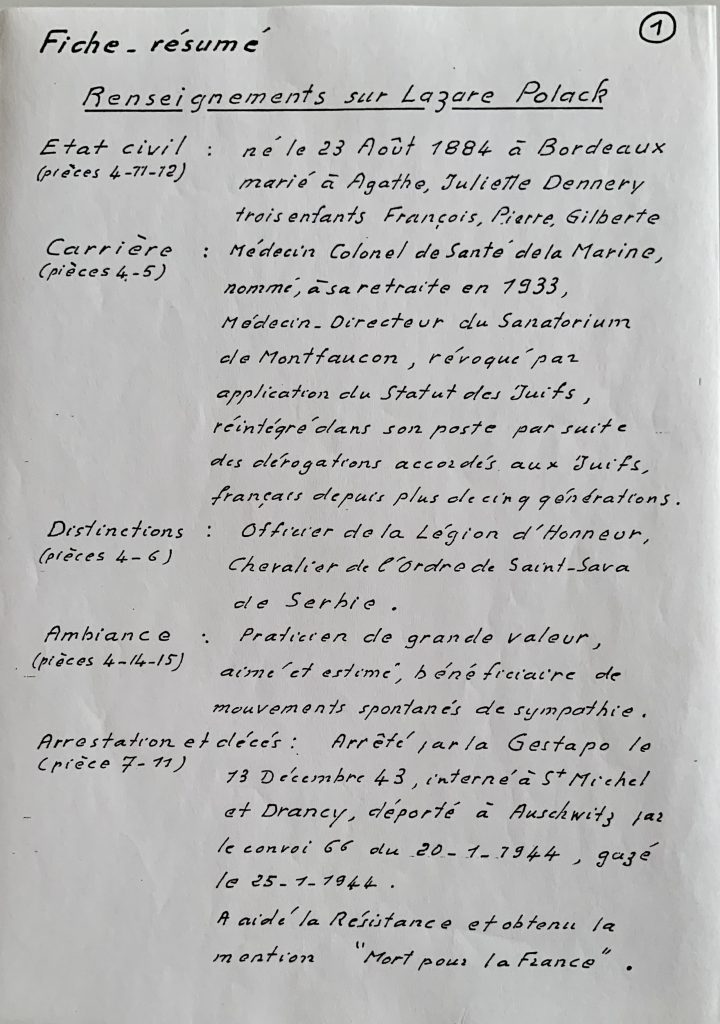 1
Fiche-résumé
Renseignements sur Lazare Polack
Etat civil : né le 23 Août 1884 à Bordeaux
(pièces 4-11-12) marié à Agathe, Juliette Dennery
trois enfants François, Pierre, Gilberte
Carrière : Médecin Colonel de Santé de la Marine,
(pièces 4-5) nommé, à sa retraite en 1933,
Médecin-Directeur du Sanatorium
de Montfaucon, révoqué par
application du Statut des Juifs,
réintégré dans son poste par suite
des dérogations accordés aux Juifs,
français depuis plus de cinq générations.
Distinctions : Officier de la Légion d'Honneur,
(pièces 4-6) Chevalier de l'Ordre de Saint-Sava
de Serbie.
Ambiance : Praticien de grande valeur,
(pièces 4-14-15) aimé et estimé, bénéficiaire de
mouvements spontanés de sympathie.
Arrestation et décés : Arrêté par la Gestapo le
(pièce 7-11) 13 Décembre 43, interné à St Michel
et Drancy, déporté à Auschwitz par
le convoi 66 du 20-1-1944, gazé
le 25-1-1944.
A aidé la Resistance et obtenu la
mention "Mort pour la France".